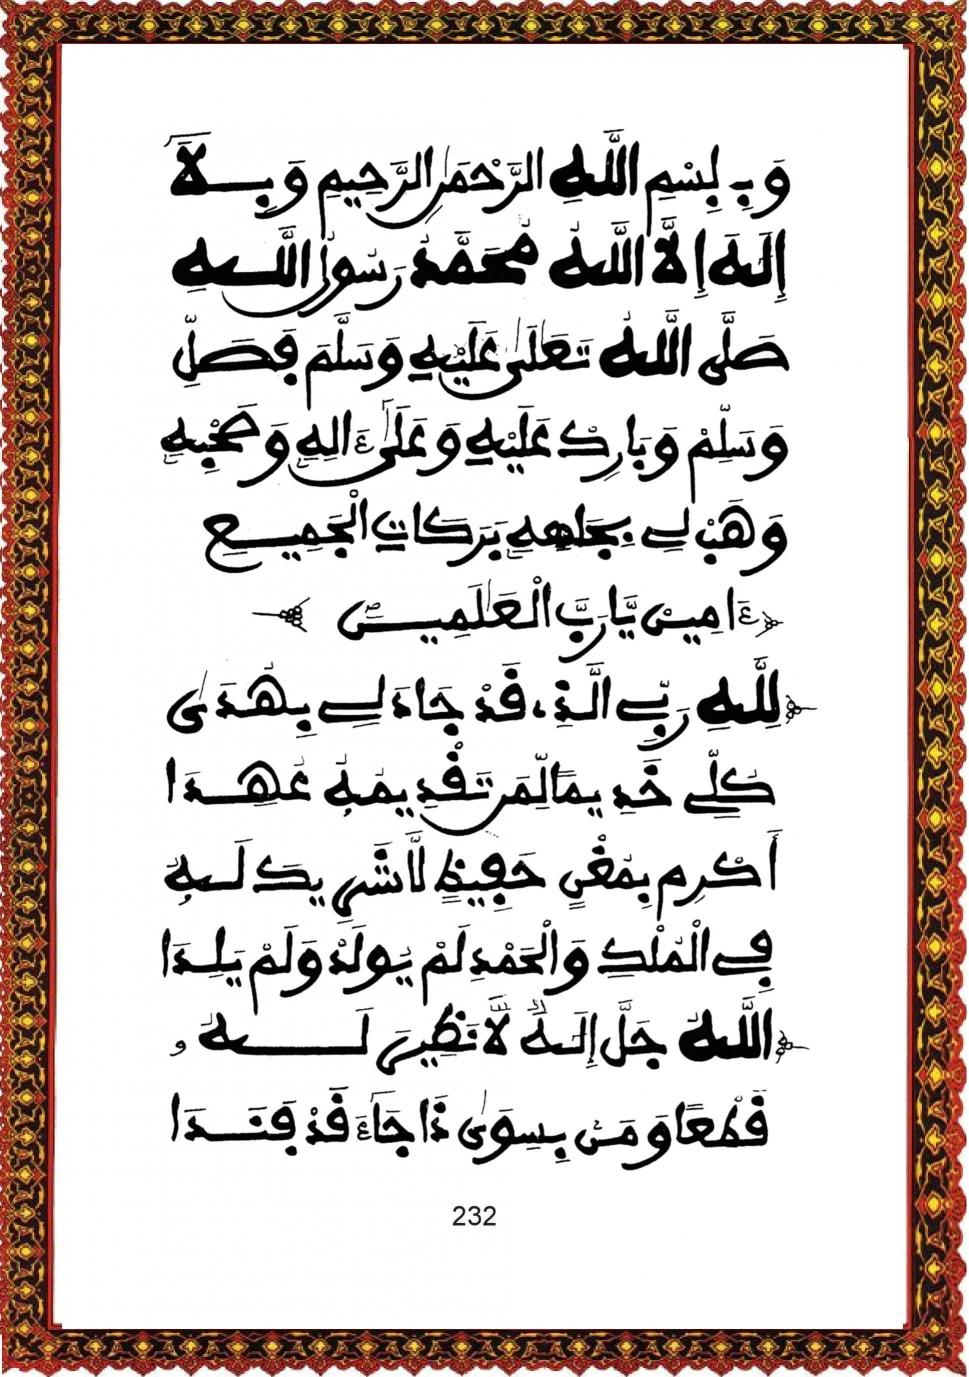 وَبِـ لِبِسْمِ اللَّهِ الرَّحْمَٰنِ الرَّحِيمِ وَبِـــلَآ
إِلَٰهَ إِلَّا اللَّهُ مُحَمَّدٌ رَسُولُ اللَّـــهِ
صَلَّى اللَّهُ تَعَالَىٰ عَلَيْهِ وَسَلَّمَ فَصَلِّ
وَسَلِّمْ وَبَارِكْ عَلَيْهِ وَعَلَىٰٓ ءَالِهِ وَصَحْبِهِ
وَهَبْ لِے بِجَاهِهِ بَرَكَاتِ الْجَمِيـــعِ
ءَامِينْ يَّارَبَّ الْعَٰلَمِيـــنْ
لِلَّهِ رَبِّے الَّذِے قَدْ جَادَ لِے بِهُدَىٰ
كُلِّے خَدِيمًا لِّمَن تَقْدِيمُهُ عُهِـــدَا
أَكْرِم بِمُغْنٍ حَفِيظٍ لَّا شَرِيكَ لَـــهُ
فِے الْمُلْكِ وَالْحَمْدِ لَمْ يُولَدْ وَلَمْ يَلِـــدَا
اللَّهُ جَلَّ إِلَٰهٌ لَّا نَظِيرَ لَـــهُ و
قَطْعًا وَمَنْ بِسِوَىٰ ذَا جَآءَ قَدْ فَنَـــدَا
232